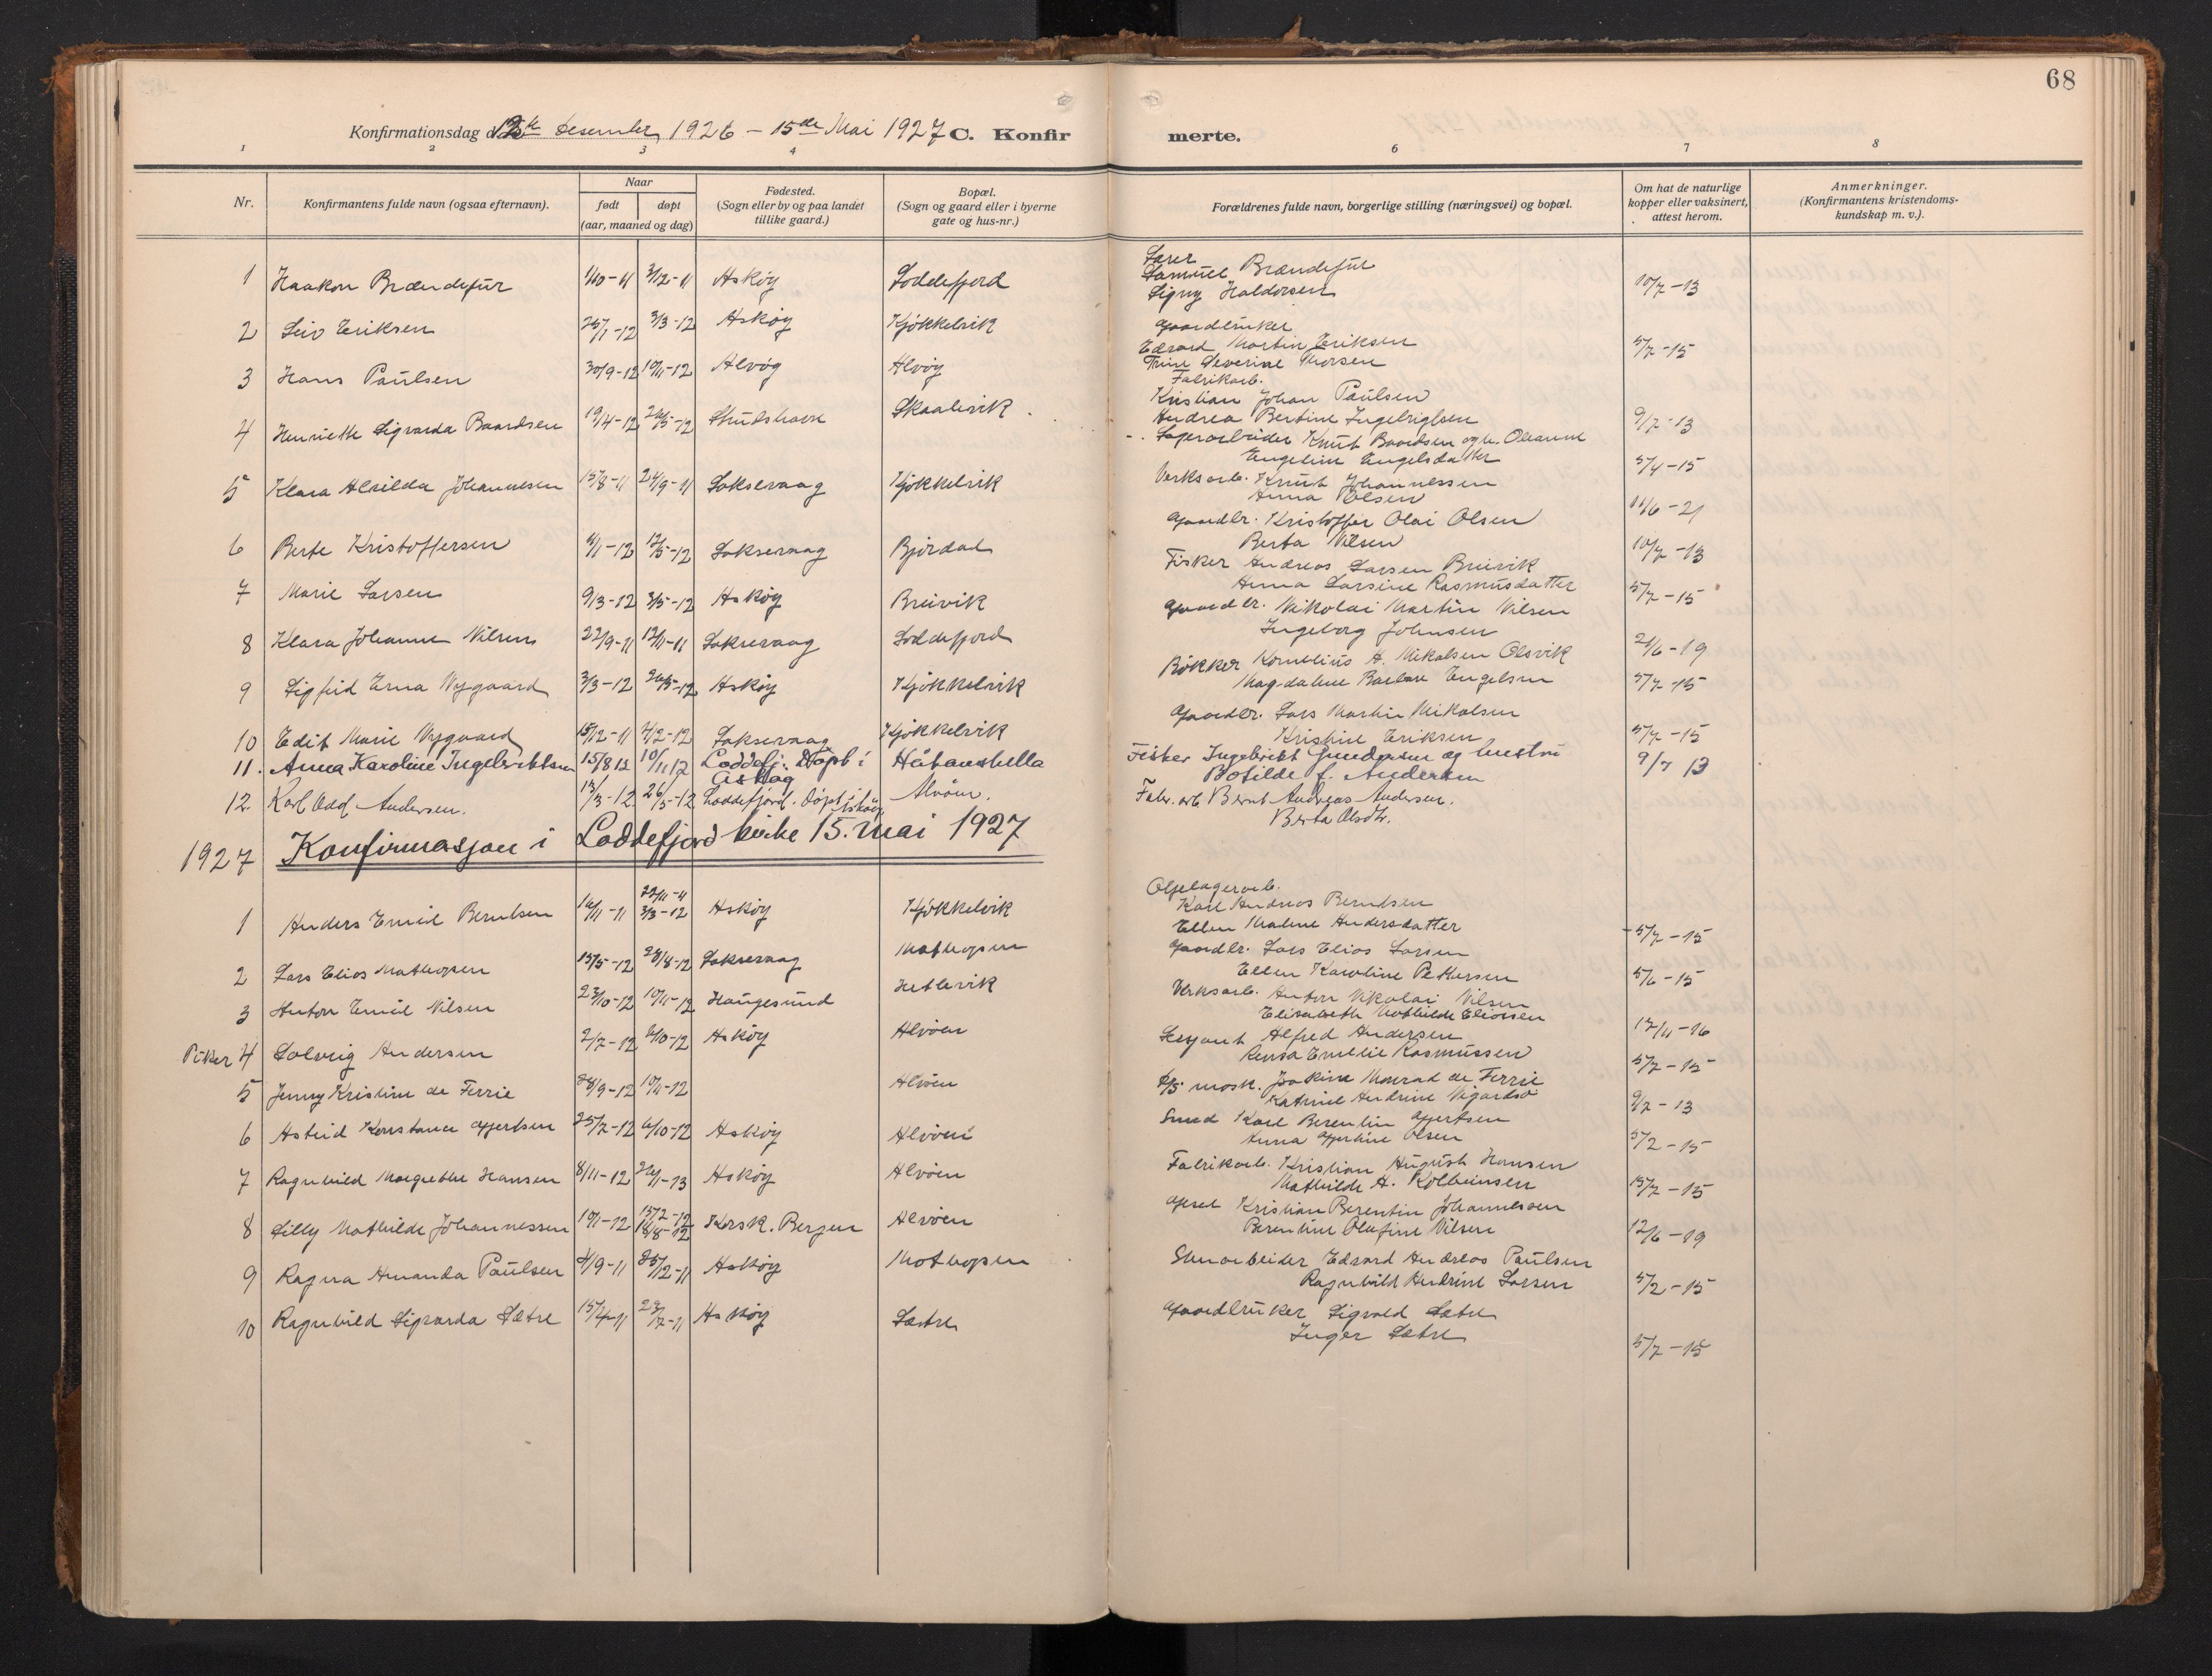 68
Konfirmationsdag d. 12te desember 1926 – 15de Mai 1927 C. Konfirmerte.
1 2 3 4 6 7 8
Nr.
Konfirmantens fulde navn (ogsaa efternavn).
Naar
født døpt
(aar, maaned og dag)
Fødested.
(Sogn eller by og paa landet
tillike gaard.)
Bopæl.
(Sogn og gaard eller i byerne
gate og hus-nr.)
Forældrenes fulde navn, borgerlige stilling (næringsvei) og bopæl.
Om hat de naturlige
kopper eller vaksinert,
attest herom.
Anmerkninger.
(Konfirmantens kristendoms-
kundskap m. v.).
1 Haakon Brændefur 1/10-11 3/12-11 Askøy Loddefjord
Samuel Brændefur
Signy Haldorsen 10/7-13
2 Leiv Eriksen 25/1-12 3/3-12 Askøy Kjøkkelvik
Gaardbruker
Edvard Martin Eriksen
Trine Severine Thorsen 5/7-15
3 Hans Paulsen 30/9-12 10/11-12 Alvøy Alvøy
Fabrikarb.
Kristian Johan Paulsen
Andrea Bertine Ingebrigtsen 9/7-13
4 Henriette Sigvarda Baardsen 19/4-12 26/5-12 Skaalevik
Knut Baardsen og h. Oleanne
Engeline Engelsdatter 5/4-15
5 Klara Alvilda Johannesen 15/8-11 24/9-11 Laksevaag Kjøkkelvik
Verksarb. Knut Johannessen
Anna Olsen 11/6-21
6 Berte Kristoffersen 4/1-12 12/5-12 Laksevaag Bjørdal
Gaardbr. Kristoffer Olai Olsen
Berta Nilsen 10/7-13
7 Marie Larsen 9/3-12 3/5-12 Askøy Breivik
Fisker Andreas Larsen Breivik
Anna Larsine Rasmusdatter 5/7-15
8 Klara Johanne Nilsen 22/9-11 12/11-11 Laksevaag Loddefjord
Gaardbr. Nikolai Martin Nilsen
Ingeborg Johnsen 21/6-19
9 Sigfrid Erna Nygaard 3/3-12 26/5-12 Askøy Kjøkkelvik
Bøkker Kornelius A. Mikalsen Olsvik
Magdalene Barbara Engelsen 5/7-15
10 Edit Marie Nygaard 15/12-11 4/2-12 Laksevaag Kjøkkelvik
Gaardbr. Lars Martin Mikalsen
Kristine Eriksen 5/7-15
11. Anna Karoline Ingebriktsen 15/8 12 10/11 12 Loddefj. Døpt i Askøy Håkonshella
Fisker Ingebrikt Gundersen og hustru
Botilde f. Andersen 9/7 13
12. Karl Odd Andersen. 13/3-12. 26/5-12 Loddefjord. døpt i Askøy Alvøen.
Fabr. arb. Bernt Andreas Andersen.
Berta Olsdtr.
1927 Konfirmasjon i Loddefjord kirke 15. mai 1927
1 Anders Emil Berntsen 16/11-11 22/11-11 3/3-12 Askøy Kjøkkelvik
Oljelagerarb.
Karl Andreas Berntsen
Ellen Malene Andersdatter 5/7-15
2 Lars Elias Mathopen 15/5-12 28/8-12 Laksevaag Mathopen
Gaardbr. Lars Elias Larsen
Ellen Karoline Pettersen 5/6-15
3 Anton Emil Nilsen 23/10-12 10/11-12 Haugesund Hetlevik
Verksarb. Anton Nikolai Nilsen
Elisabeth Mathilde Eliassen 17/11-16
Piker 4 Solveig Andersen 2/7-12 6/10-12 Askøy Alvøen
Sersjant Alfred Andersen
Rensa Emelie Rasmussen 5/7-15
5 Jenny Kristine de Ferrie 28/9-12 10/11-12 Alvøen
Joakim Monrad de Ferrie
Katrine Andrine 9/7-13
6 Astrid Konstance Gjertsen 25/7-12 6/10-12 Askøy Alvøen
Smed Karl Berentin Gjertsen
Anna Gjertine Olsen 5/2-15
7 Ragnhild Margrethe Hansen 8/11-12 26/1-13 Askøy Alvøen
Fabrikarb. Kristian August Hansen
Mathilde A. Kolbeinsen 15/7-15
8 Lilly Mathilde Johannessen 10/1-12 15/2-12 18/8-12 Korsk. Bergen Alvøen
Kristian Berentin Johannessen
Berentine Olufine Nilsen 12/6-19
9 Ragna Amanda Paulsen 4/9-11 26/12-11 Askøy Mathopen
Edvard Andreas Paulsen
Ragnhild Andrine Larsen 5/2-15
10 Ragnhild Sigvarda Sætre 15/4-11 23/7-11 Askøy Sætre
Gaardbruker Sigvald Sætre
Inger Sætre 5/7-15